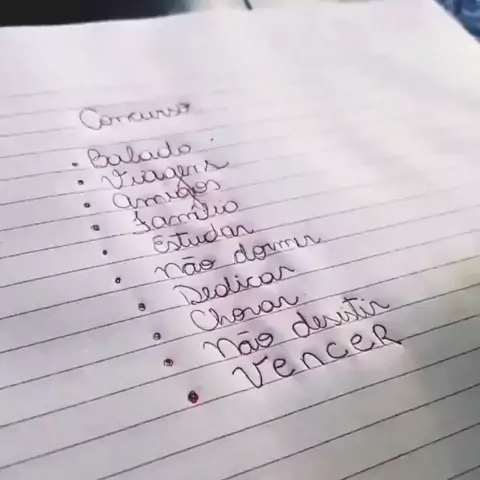 Concurso
• Balada
• Viagens
• amigos
• família
• Estudar
• não dormir
• Dedicar
• Chorar
• não desistir
• Vencer